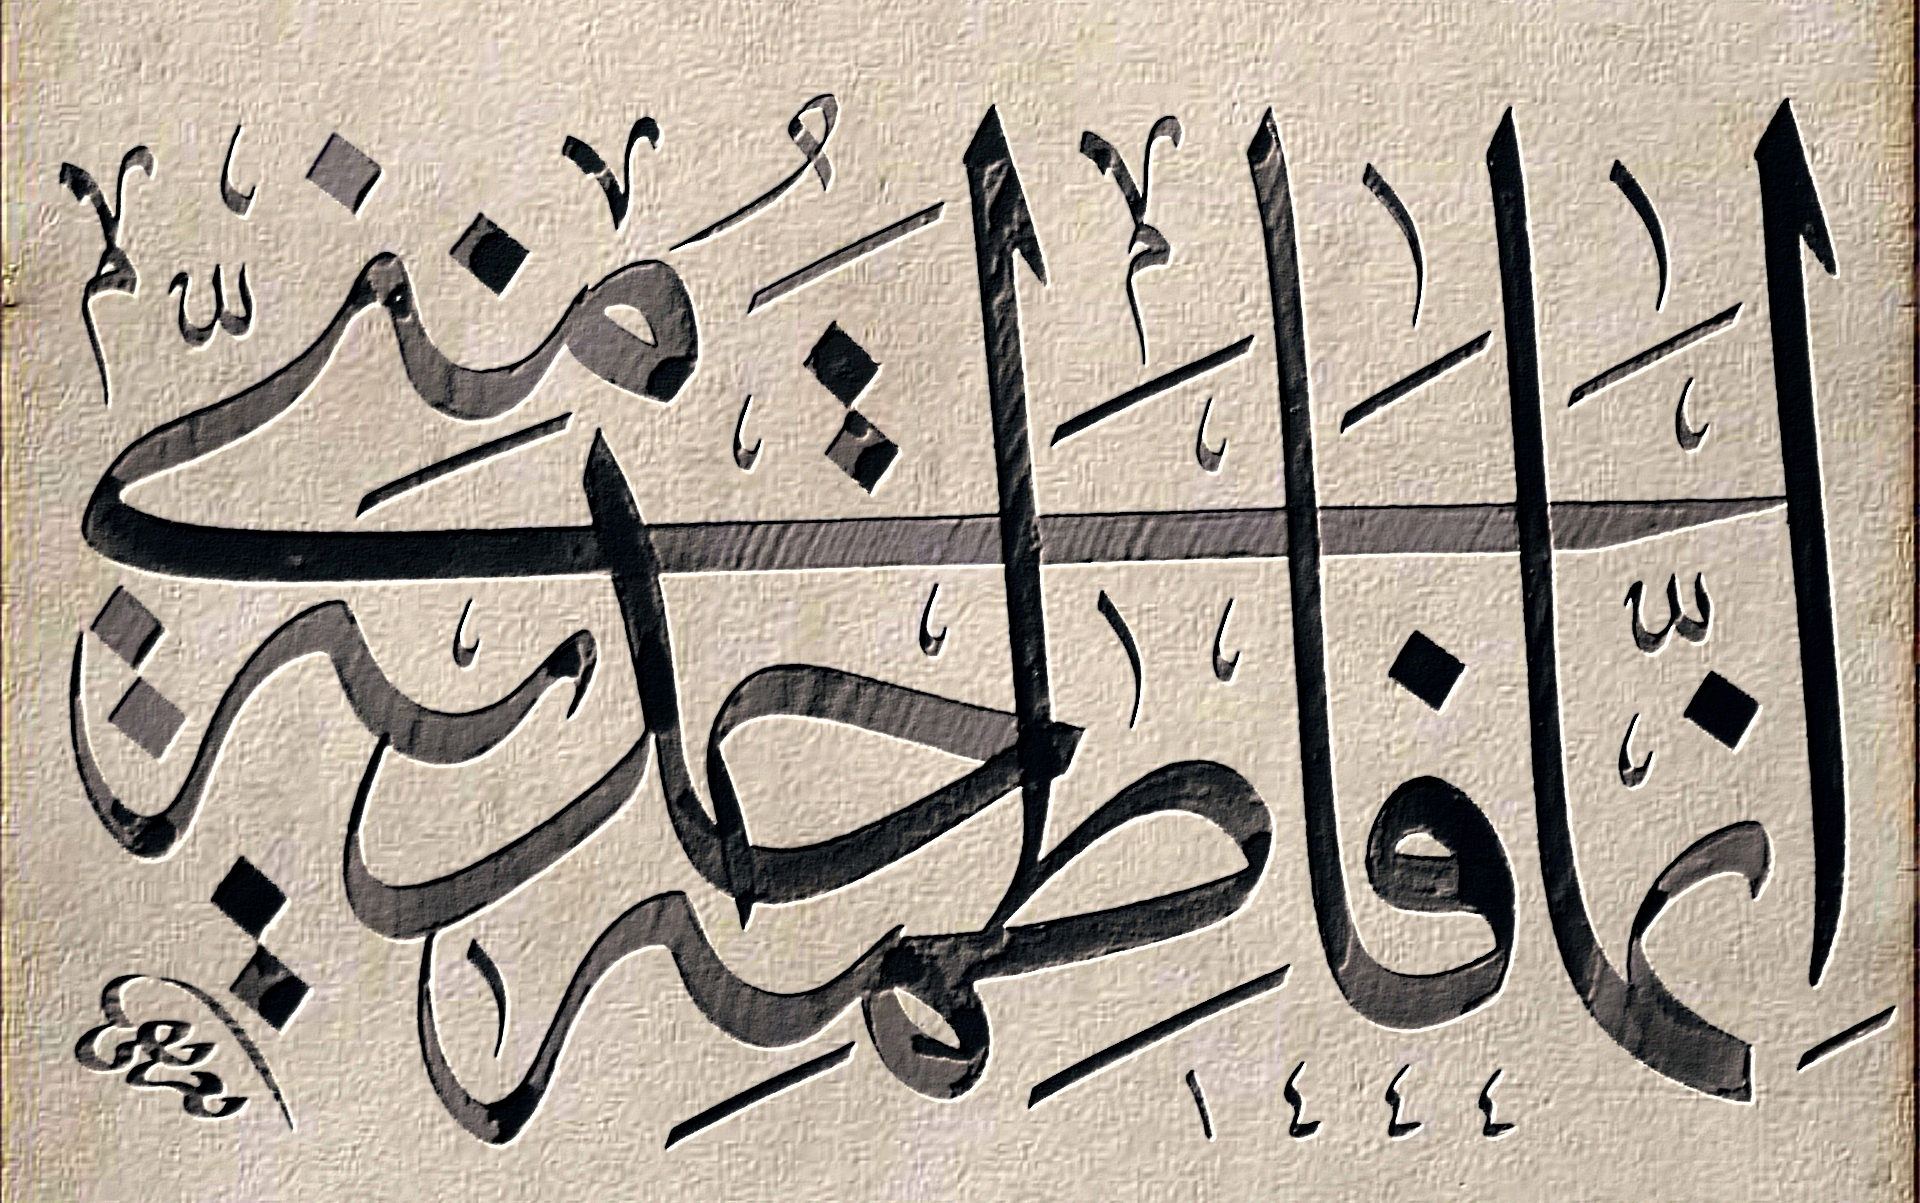 إنَّما فاطمة حذية منّي
١٤٤٤